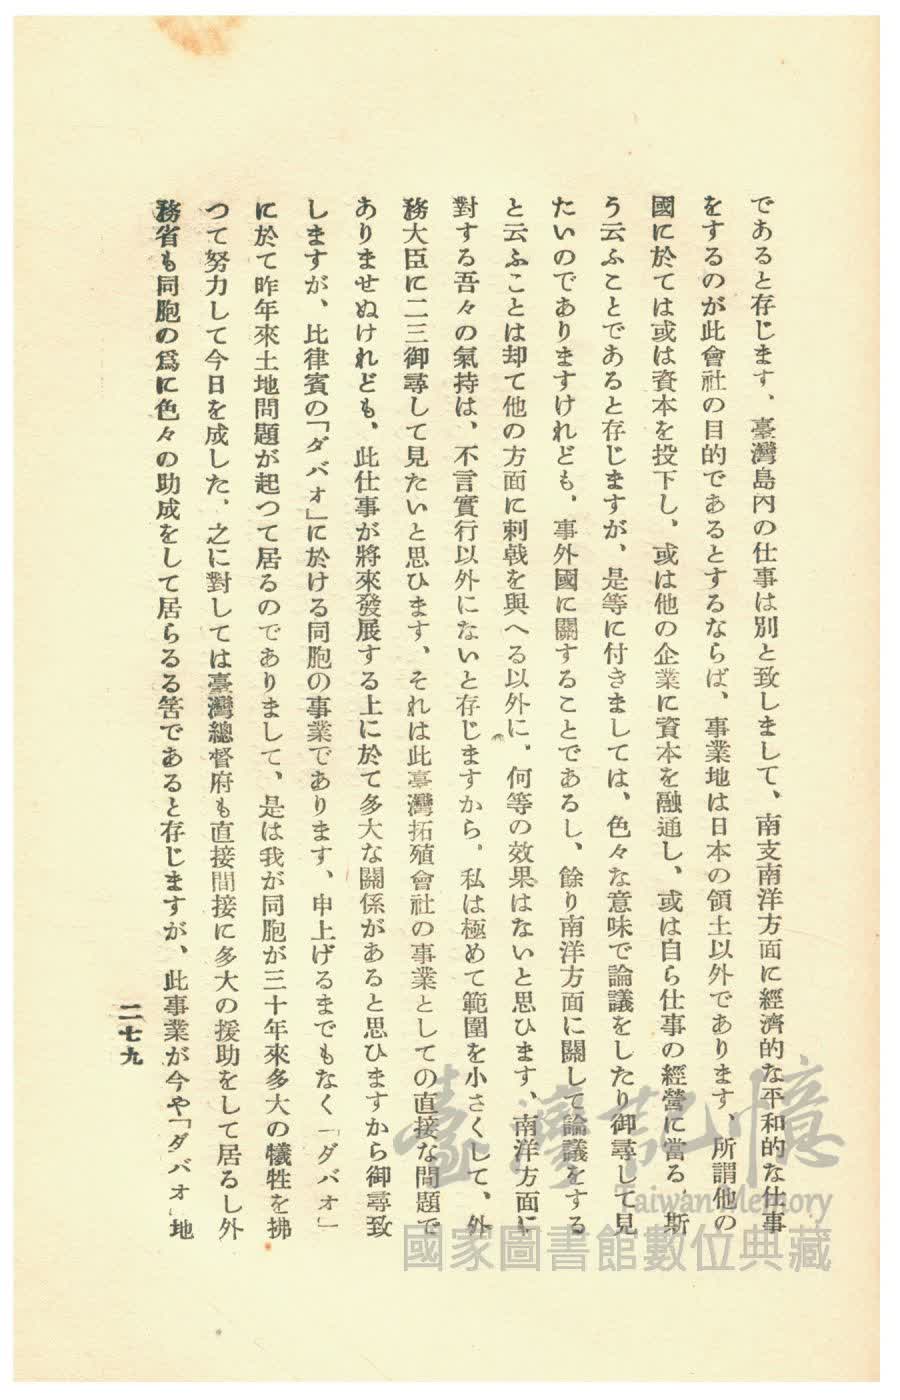 であると存じます、臺灣島內の仕事は別と致しまして、南支南洋方面に經濟的な平和的な仕事
をするのが此會社の目的であるとするならば、事業地は日本の領土以外であります、所謂他の
國に於ては或は資本を投下し、或は他の企業に資本を融通し、或は自ら仕事の經營に當る、斯
う云ふことであると存じますが、是等に付きましては、色々な意味で論議をしたり御尋して見
たいのでありますけれども、事外國に關することであるし、餘り南洋方面に關して論議をする
と云ふことは却て他の方面に刺戟を與へる以外に、何等の效果はないと思ひます、南洋方面に
對する吾々の氣持は、不言實行以外にないと存じますから、私は極めて範圍を小さくして、外
務大臣に二三御尋して見たいと思ひます、それは此臺灣拓殖會社の事業としての直接な問題で
ありませぬけれども、此仕事が將來發展する上に於て多大な關係があると思ひますから御尋致
しますが、比律賓の「ダバオ」に於ける同胞の事業であります、申上げるまでもなく「ダバオ」
に於て昨年來土地問題が起つて居るのでありまして、是は我が同胞が三十年來多大の犧牲を拂
つて努力して今日を成した、之に對しては臺灣總督府も直接間接に多大の援助をして居るし外
務省も同胞の爲に色々の助成をして居らるる筈であると存じますが、此事業が今や「ダバオ」地
二七九
臺灣記憶
Taiwan Memory
國家圖書館數位典藏